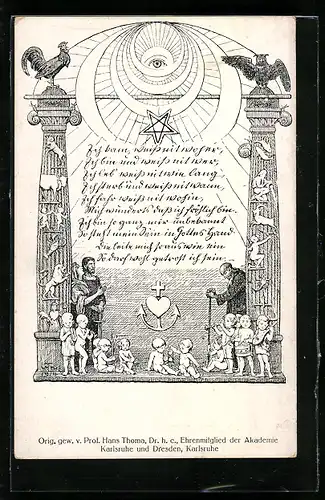 Ich kam, weiß nit woher,
Ich bin und weiß nit wer,
Ich leb weiß nit wie lang,
Ich sterb und weiß nit wann,
Ich fahr weiß nit wohin,
Mich wunderts daß ich fröhlich bin.
Da ich so ganz mir unbekannt
So steht mein Sein in Gottes Hand.
Die leite mich so aus wie ein
So darf wohl getrost ich sein.
Orig. gew. v. Prof. Hans Thoma, Dr. h. c., Ehrenmitglied der Akademie
Karlsruhe und Dresden, Karlsruhe